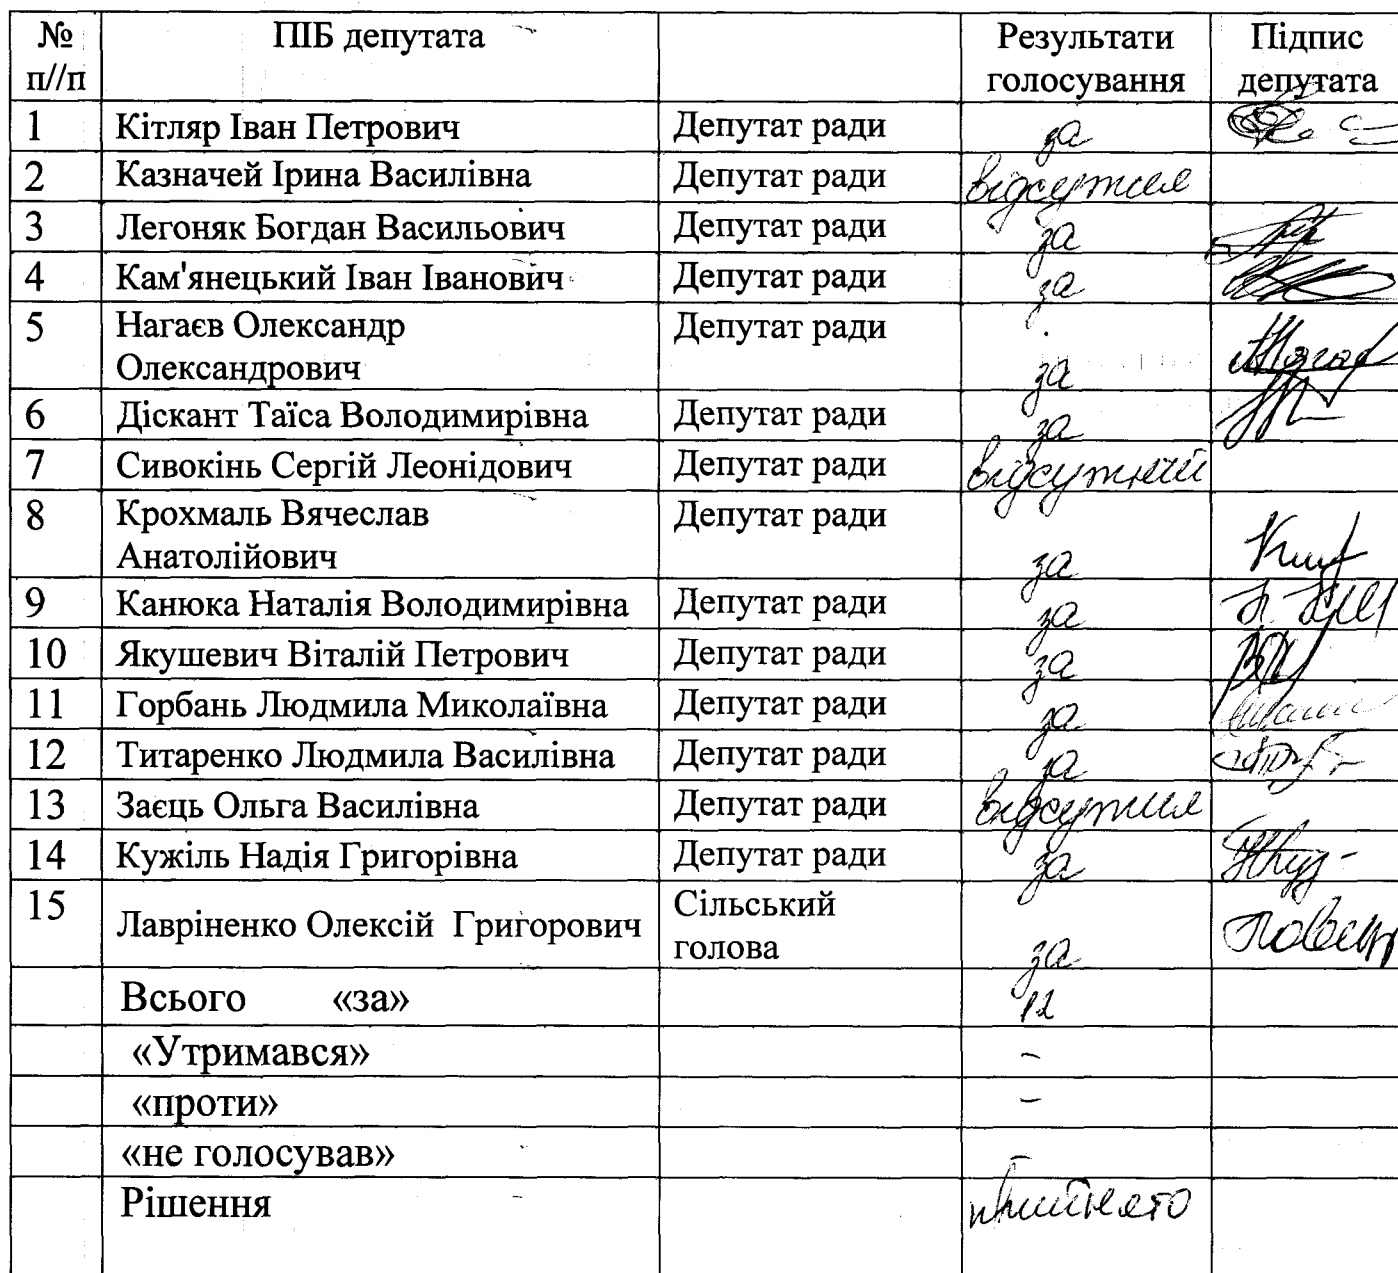 № ПІБ депутата Результати Підпис
п//п голосування депутата
1 Кітляр Іван Петрович Депутат ради за
2 Казначей Ірина Василівна Депутат ради відсутня
3 Легоняк Богдан Васильович Депутат ради за
4 Кам'янецький Іван Іванович Депутат ради за
5 Нагаєв Олександр Депутат ради
Олександрович за
6 Діскант Таїса Володимирівна Депутат ради за
7 Сивокінь Сергій Леонідович Депутат ради відсутній
8 Крохмаль Вячеслав Депутат ради
Анатолійович за
9 Канюка Наталія Володимирівна Депутат ради за
10 Якушевич Віталій Петрович Депутат ради за
11 Горбань Людмила Миколаївна Депутат ради за
12 Титаренко Людмила Василівна Депутат ради за
13 Заєць Ольга Василівна Депутат ради відсутня
14 Кужіль Надія Григорівна Депутат ради за
15 Лавріненко Олексій Григорович Сільський
голова за
Всього «за» 12
«Утримався» -
«проти» -
«не голосував»
Рішення прийнято